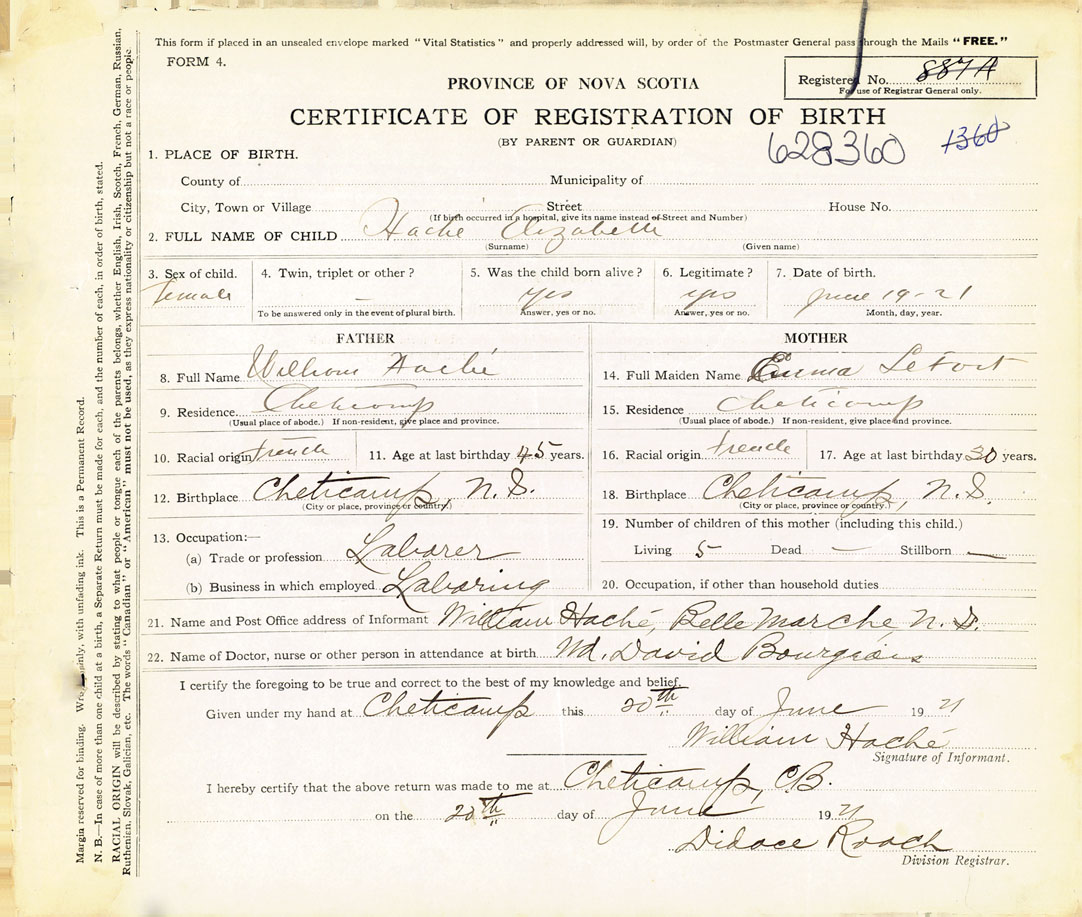 This form if placed in an unsealed envelope marked "Vital Statistics" and properly addressed will, by order of the Postmaster General pass through the Mails "FREE."
FORM 4.
Registered No. 887A
For use of Registrar General only.
PROVINCE OF NOVA SCOTIA
CERTIFICATE OF REGISTRATION OF BIRTH
(BY PARENT OR GUARDIAN)
628360 1360
1. PLACE OF BIRTH.
County of Municipality of
City, Town or Village Street House No.
(If birth occurred in a hospital, give its name instead of Street and Number)
2. FULL NAME OF CHILD Haché Elizabeth
(Surname) (Given name)
3. Sex of child. 4. Twin, triplet or other? 5. Was the child born alive? 6. Legitimate? 7. Date of birth.
Female — yes yes June 19-21
To be answered only in the event of plural birth. Answer, yes or no. Answer, yes or no. Month, day, year.
FATHER
8. Full Name William Haché
9. Residence Cheticamp
(Usual place of abode.) If non-resident, give place and province.
10. Racial origin French 11. Age at last birthday 45 years.
12. Birthplace Cheticamp, N.S.
(City or place, province or country.)
13. Occupation:—
(a) Trade or profession Laborer
(b) Business in which employed Laboring
MOTHER
14. Full Maiden Name Emma LeFort
15. Residence Cheticamp
(Usual place of abode.) If non-resident, give place and province.
16. Racial origin French 17. Age at last birthday 30 years.
18. Birthplace Cheticamp, N.S.
(City or place, province or country.)
19. Number of children of this mother (including this child.)
Living 5 Dead — Stillborn —
20. Occupation, if other than household duties
21. Name and Post Office address of Informant William Haché, Belle Marche, N.S.
22. Name of Doctor, nurse or other person in attendance at birth Md. David Bourgeois
I certify the foregoing to be true and correct to the best of my knowledge and belief.
Given under my hand at Cheticamp this 20th day of June 1921
William Haché
Signature of Informant.
I hereby certify that the above return was made to me at Cheticamp, C.B.
on the 20th day of June 1921
Didace Roach
Division Registrar.
Margin reserved for binding. Write plainly, with unfading ink. This is a Permanent Record.
N. B.—In case of more than one child at a birth, a Separate Return must be made for each, and the number of each, in order of birth, stated.
RACIAL ORIGIN will be described by stating to what people or tongue each of the parents belongs, whether English, Irish, Scotch, French, German, Russian,
Ruthenian, Slovak, Galician, etc. The words "Canadian" or "American" must not be used, as they express nationality or citizenship but not a race or people.